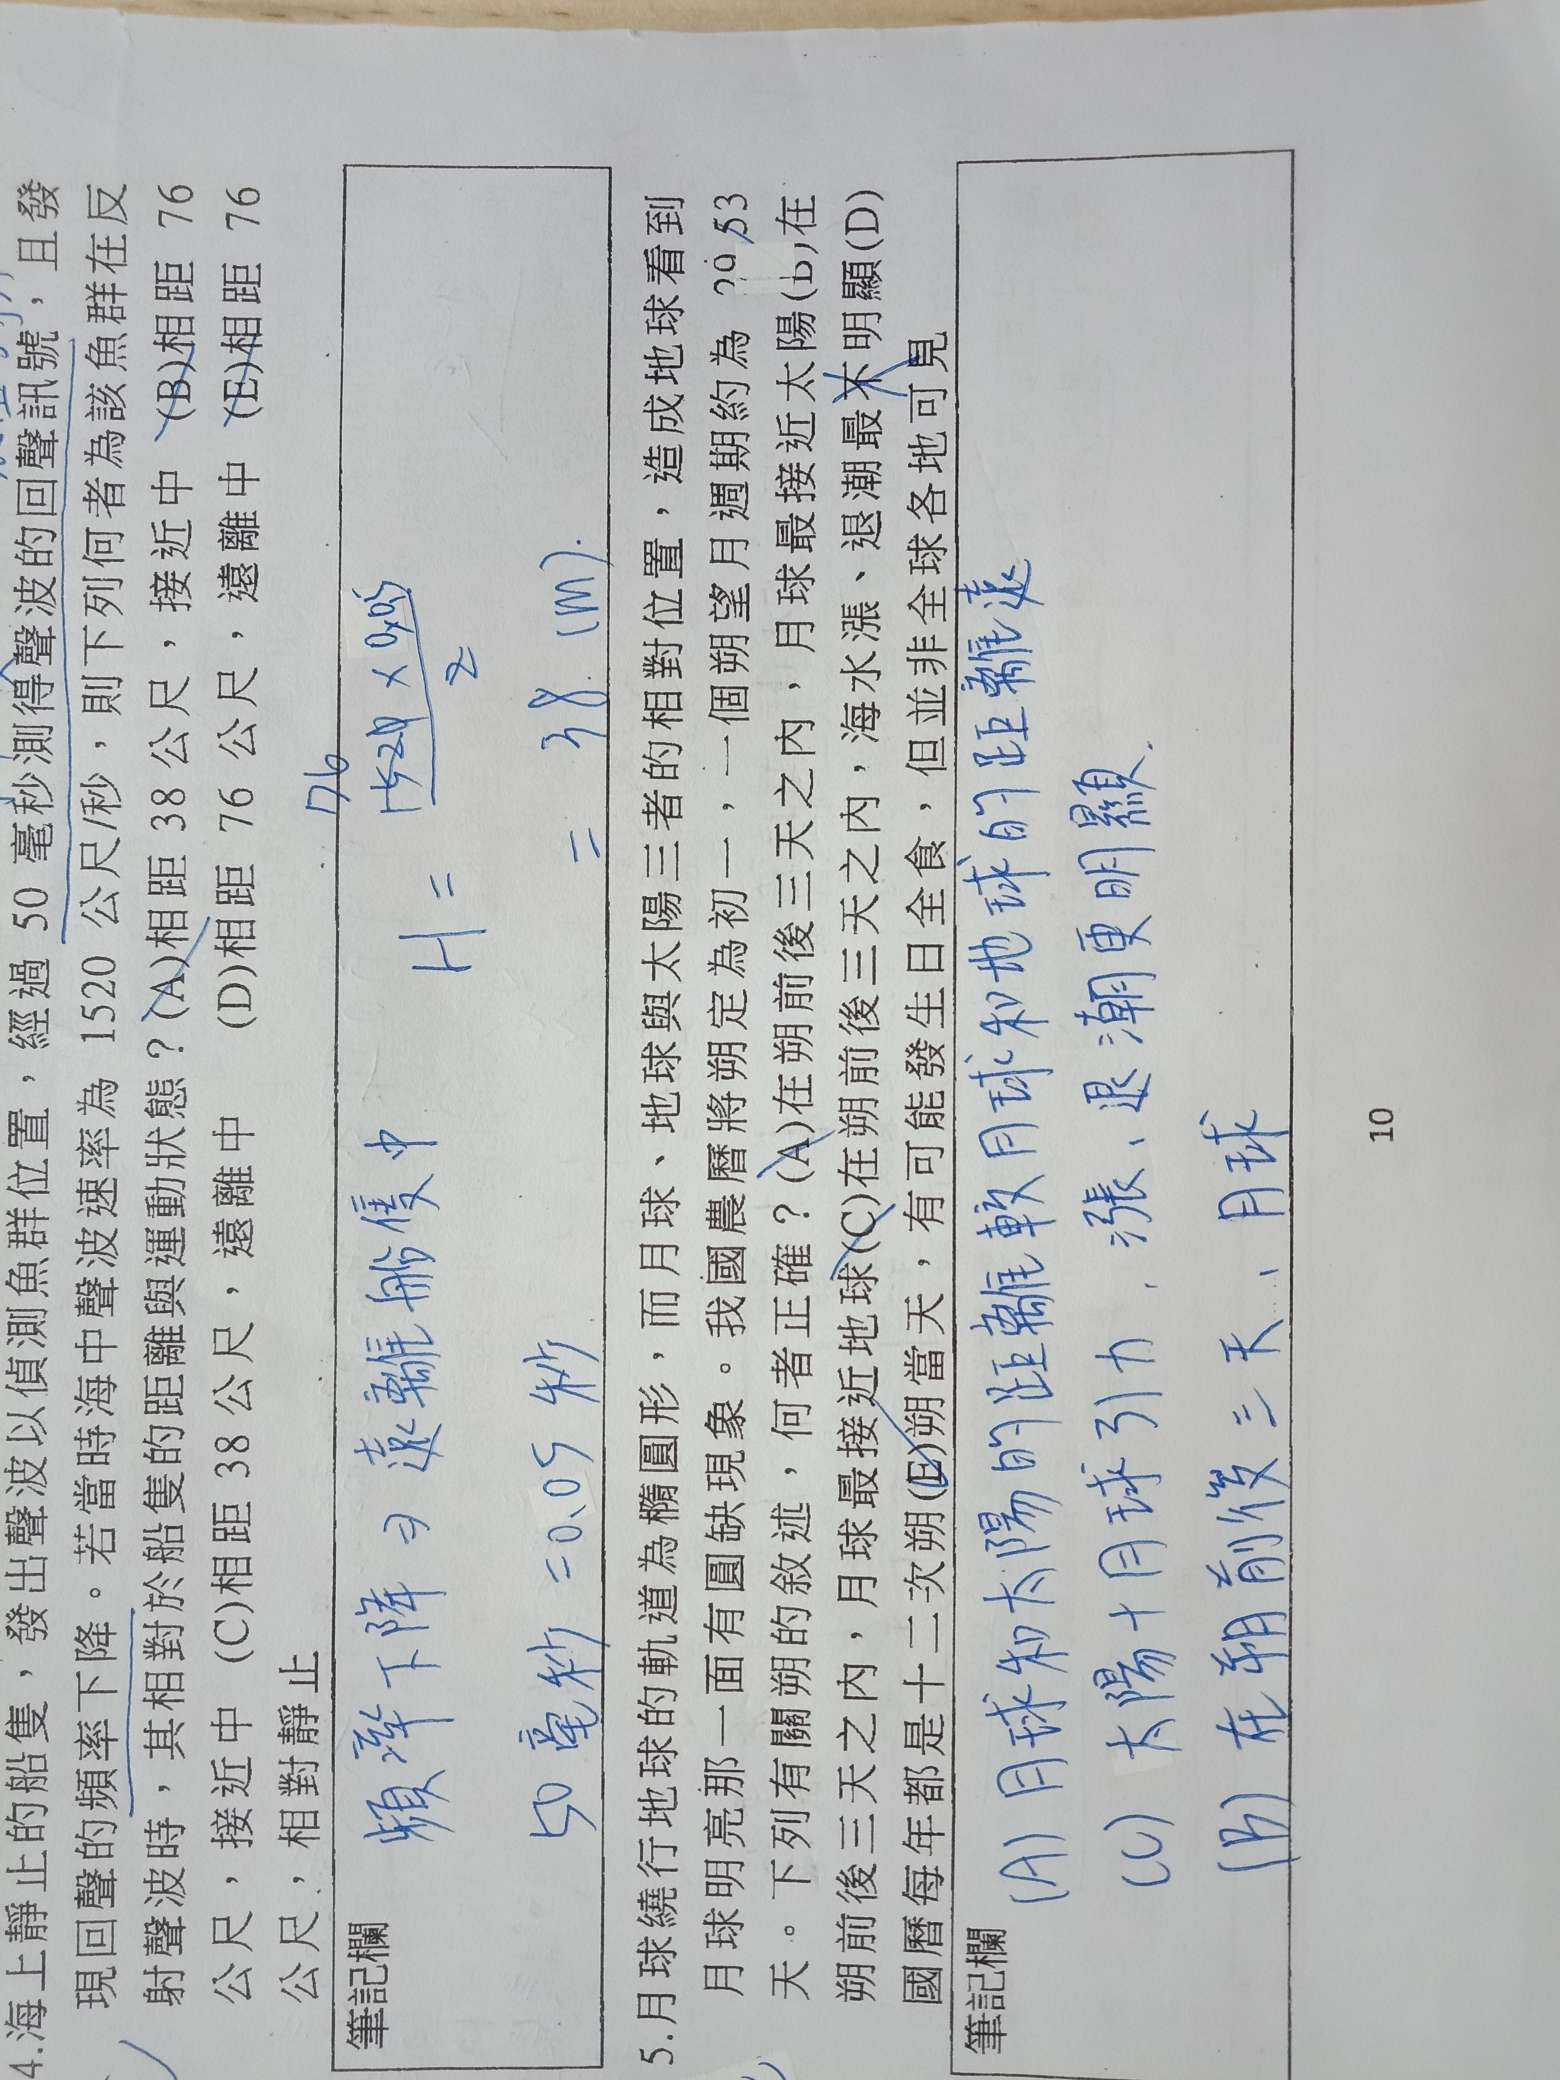 4.海上靜止的船隻，發出聲波以偵測魚群位置，經過 50 毫秒測得聲波的回聲訊號，且發
現回聲的頻率下降。若當時海中聲波速率為 1520 公尺/秒，則下列何者為該魚群在反
射聲波時，其相對於船隻的距離與運動狀態？(A)相距 38 公尺，接近中 (B)相距 76
公尺，接近中 (C)相距 38 公尺，遠離中 (D)相距 76 公尺，遠離中 (E)相距 76
公尺，相對靜止
筆記欄
76
頻率下降 ⇒ 遠離船隻中 H = 1520 × 0.05
2
50 毫秒 = 0.05 秒 = 38 (m).
5.月球繞行地球的軌道為橢圓形，而月球、地球與太陽三者的相對位置，造成地球看到
月球明亮那一面有圓缺現象。我國農曆將朔定為初一，一個朔望月週期約為 29.53
天。下列有關朔的敘述，何者正確？(A)在朔前後三天之內，月球最接近太陽(b)在
朔前後三天之內，月球最接近地球(C)在朔前後三天之內，海水漲、退潮最不明顯(D)
國曆每年都是十二次朔(E)朔當天，有可能發生日全食，但並非全球各地可見
筆記欄
(A) 月球和太陽的距離較月球和地球的距離遠
(C) 太陽十月球引力，漲、退潮更明顯.
(B) 在朔前後三天、月球
10